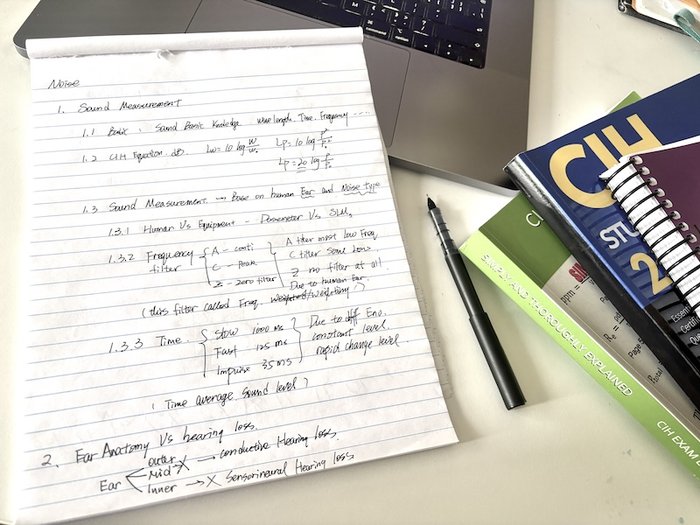 Noise
1. Sound Measurement
1.1 Basic : Sound Basic Knoledge wave length. Time. Frequency .....
1.2 CIH Equation. dB. Lw = 10 log W/W₀ Lp = 10 log P²/P₀²
Lp = 20 log P/P₀
1.3 Sound Measurement. → Base on human Ear and Noise type
1.3.1 Human Vs Equipment - Dosemeter Vs. SLM.
1.3.2 Frequency filter
A - conti
C - Peak
Z - zero filter
A filter most low Freq.
C filter Some Low.
Z no filter at all
Due to human Ear
(this filter called Freq. Weighting)
1.3.3 Time.
Slow 1000 ms
Fast 125 ms
Impulse 35 ms
Due to diff Env.
constant level.
rapid change level
(Time average. Sound level)
2. Ear Anatomy Vs hearing loss.
Ear
outer
Mid → conductive Hearing loss.
Inner → X Sensorineural Hearing loss
CIH
2
SIMPLY AND THOROUGHLY EXPLAINED
CIH EXAM
ppm =
Page